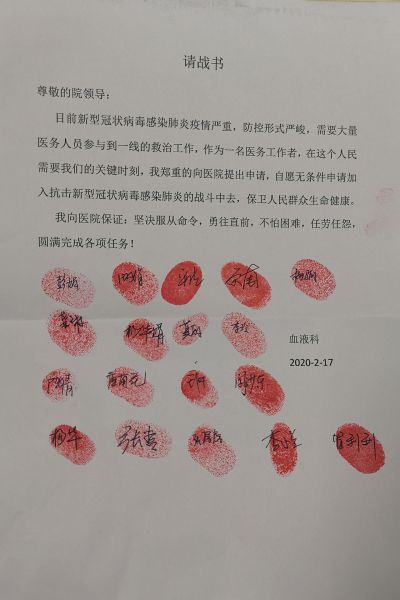 请战书
尊敬的院领导：
目前新型冠状病毒感染肺炎疫情严重，防控形式严峻，需要大量
医务人员参与到一线的救治工作，作为一名医务工作者，在这个人民
需要我们的关键时刻，我郑重的向医院提出申请，自愿无条件申请加
入抗击新型冠状病毒感染肺炎的战斗中去，保卫人民群众生命健康。
我向医院保证：坚决服从命令，勇往直前，不怕困难，任劳任怨，
圆满完成各项任务！
血液科
2020-2-17